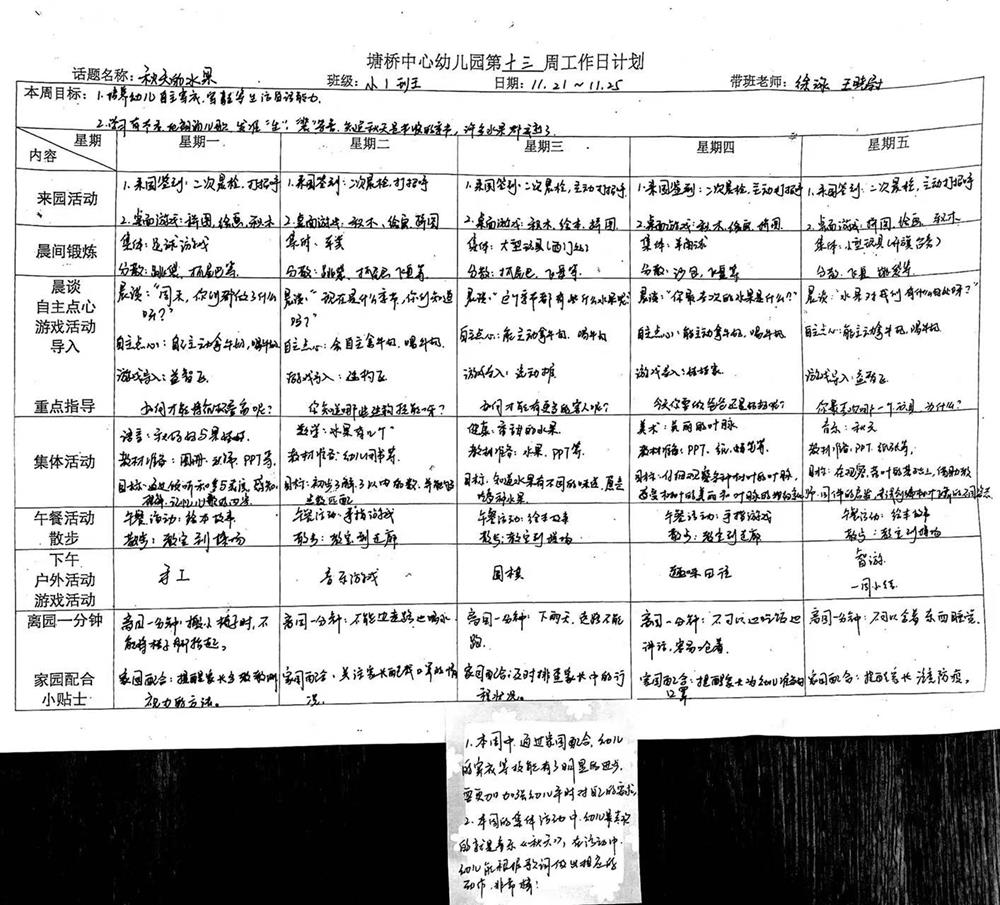 塘桥中心幼儿园第十三周工作日计划
话题名称：秋天的水果 班级：小1班 日期：11.21～11.25 带班老师：徐
本周目标：1.培养幼儿自主 能力。
2.学习 知道秋天是丰收的季节，许多水果都成熟了。
星期 内容 星期一 星期二 星期三 星期四 星期五
来园活动
1.来园签到：二次晨检，打招呼
2.桌面游戏：拼图、绘画、积木
1.来园签到：二次晨检，打招呼
2.桌面游戏：积木、绘画、拼图
1.来园签到：二次晨检，主动打招呼
2.桌面游戏：积木、绘本、拼图
1.来园签到：二次晨检，主动打招呼
2.桌面游戏：积木、绘画、拼图
1.来园签到：二次晨检，主动打招呼
2.桌面游戏：拼图、绘画、积木
晨间锻炼
集体：皮球游戏
分散：跳袋、抓尾巴等
集体：
分散：跳袋、抓尾巴、飞盘等
集体：大型玩具（西门处）
分散：抓尾巴、飞盘等
集体：羊角球
分散：沙包、飞盘等
集体：小型玩具
分散：飞盘、跳袋等
晨谈
自主点心
游戏活动
导入
重点指导
晨谈：“周末，你们都做了什么呀？”
自主点心：自己主动拿牛奶，喝牛奶
游戏导入：益智区
晨谈：“现在是什么季节，你们知道吗？”
自主点心：会自主拿牛奶，喝牛奶。
游戏导入：建构区
你知道哪些建构技能呀？
晨谈：“这个季节都有些什么水果呢”
自主点心：能主动拿牛奶，喝牛奶
游戏导入：
如何才能有更多的客人呢？
晨谈：“你最喜欢的水果是什么？”
自主点心：能主动拿牛奶，喝牛奶。
游戏导入：娃娃家
今天你要做爸爸还是妈妈呢？
晨谈：“水果对我们有什么好处呀？”
自主点心：能主动拿牛奶，喝牛奶。
游戏导入：益智区
你最喜欢哪一个玩具，为什么？
集体活动
语言：
教材准备：图册、PPT等
数学：水果有几个
教材准备：幼儿用书等
目标：初步了解3以内的数，并能够
健康：
教材准备：水果、PPT等
目标：知道水果有不同的味道，愿意吃各种水果
美术：美丽的叶脉
教材准备：PPT、纸、蜡笔等
目标：仔细观察各种树叶的叶脉，
音乐：秋天
教材准备：PPT、纸张等
目标：在观察落叶的基础上，
午餐活动
散步
午餐活动：绘本故事
散步：教室到操场
午餐活动：手指游戏
散步：教室到走廊
午餐活动：绘本故事
散步：教室到操场
午餐活动：手指游戏
散步：教室到走廊
午餐活动：绘本故事
散步：教室到操场
下午
户外活动
游戏活动
手工
音乐游戏
围棋
趣味田径
智游
一周小结
离园一分钟
离园一分钟：搬小椅子时，不能将椅子
离园一分钟：不能边走路边喝水
离园一分钟：下雨天，走路不能跑。
离园一分钟：不可以边吃饭边讲话，容易呛着
离园一分钟：不可以含着东西睡觉
家园配合
小贴士
家园配合：提醒家长 视力的方法。
家园配合：关注家长配戴口罩的情况。
家园配合：及时排查家长中的行程状况。
家园配合：提醒家长为幼儿准备好口罩
家园配合：提醒家长注意防疫。
1.本周中，通过家园配合，幼儿
的穿衣等技能有了明显的进步，
需更加加强幼儿平时对自己的要求。
2.本周的集体活动中，幼儿最喜欢
的就是音乐《秋天》，在活动中，
幼儿能根据歌词做出相应的
动作，非常棒！